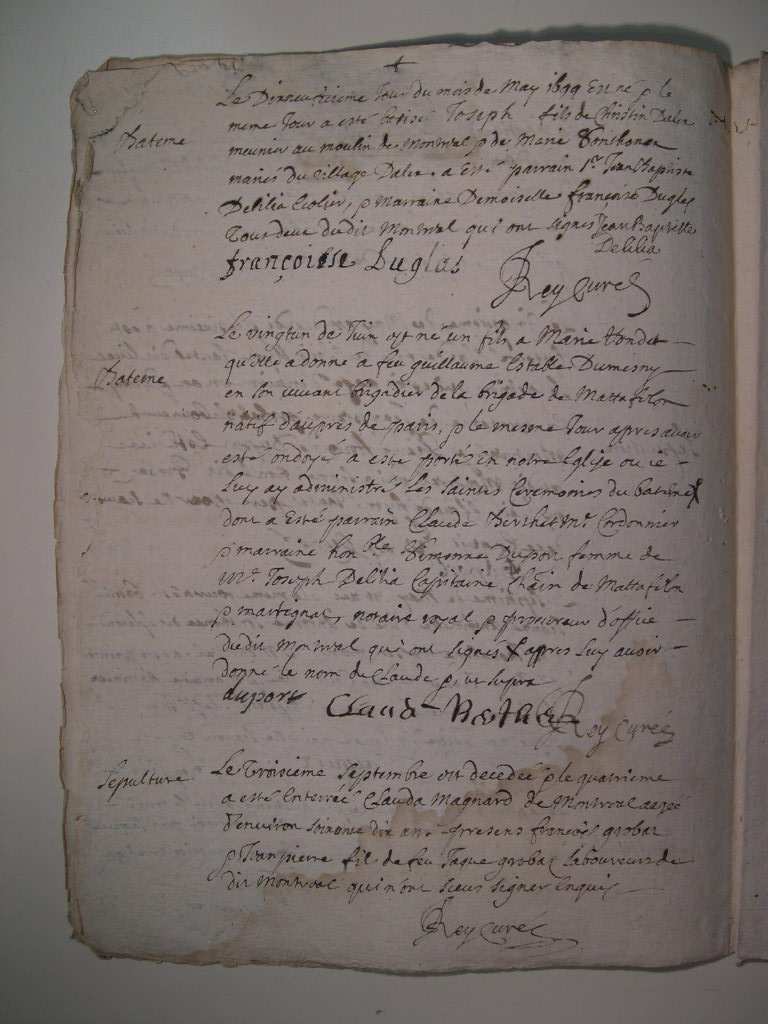 Le Dixneufvieme Jour du mois de May 1699 Est né p le
meme Jour a esté batisé Joseph fils de Christin Dalex
Bateme
meunier au moulin de Montreal p de Marie
mariés du village Dalex a esté parrain Sr Jean Baptiste
Delilia Ecolier, p marraine Demoiselle françoise Duglas
Tous deux dudit Montreal qui ont signés Jean Baptiste
Delilia
françoisse Duglas
Rey curé
Le vingtun de Juin est né un fils a Marie
quelle a donné a feu guillaume Estable Dumesny
Bateme
en son vivant brigadier de la brigade de Mattafelon
natif daupres de paris, p le mesme Jour apres avoir
esté ondoyé a esté porté En notre Eglise ou ie
Luy ay administré Les saintes Ceremonies du bateme
dont a Esté parrain Claude Berthet Mr Cordonnier
p marraine honble Duport femme de
Mr Joseph Delilia Capitaine Chatin de Mattafelon
p martignat, notaire royal p procureur d'office
dudit Montreal qui ont signés apres Luy avoir
donné le nom de Claude p ut supra
duport Claude
Rey curé
Sepulture
Le Troisieme Septembre est decedée p le quatrieme
a esté Enterrée Clauda Magnard de Montreal agée
d'environ soixante dix ans presens françois grobas
p Jean pierre fil de feu Jaque grobas Laboureurs de
dit Montreal qui n'ont sceus signer Enquis
Rey curé